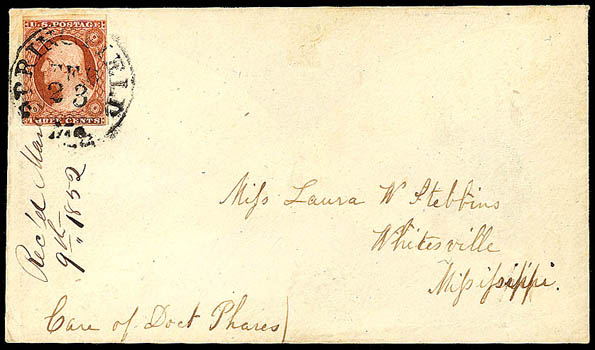 U.S. POSTAGE
THREE CENTS
SPRINGFIELD
FEB
23
Rec'd Mar
9th 1852
Miss Laura W Stebbins
Whitesville
Mississippi.
Care of Doct Phares